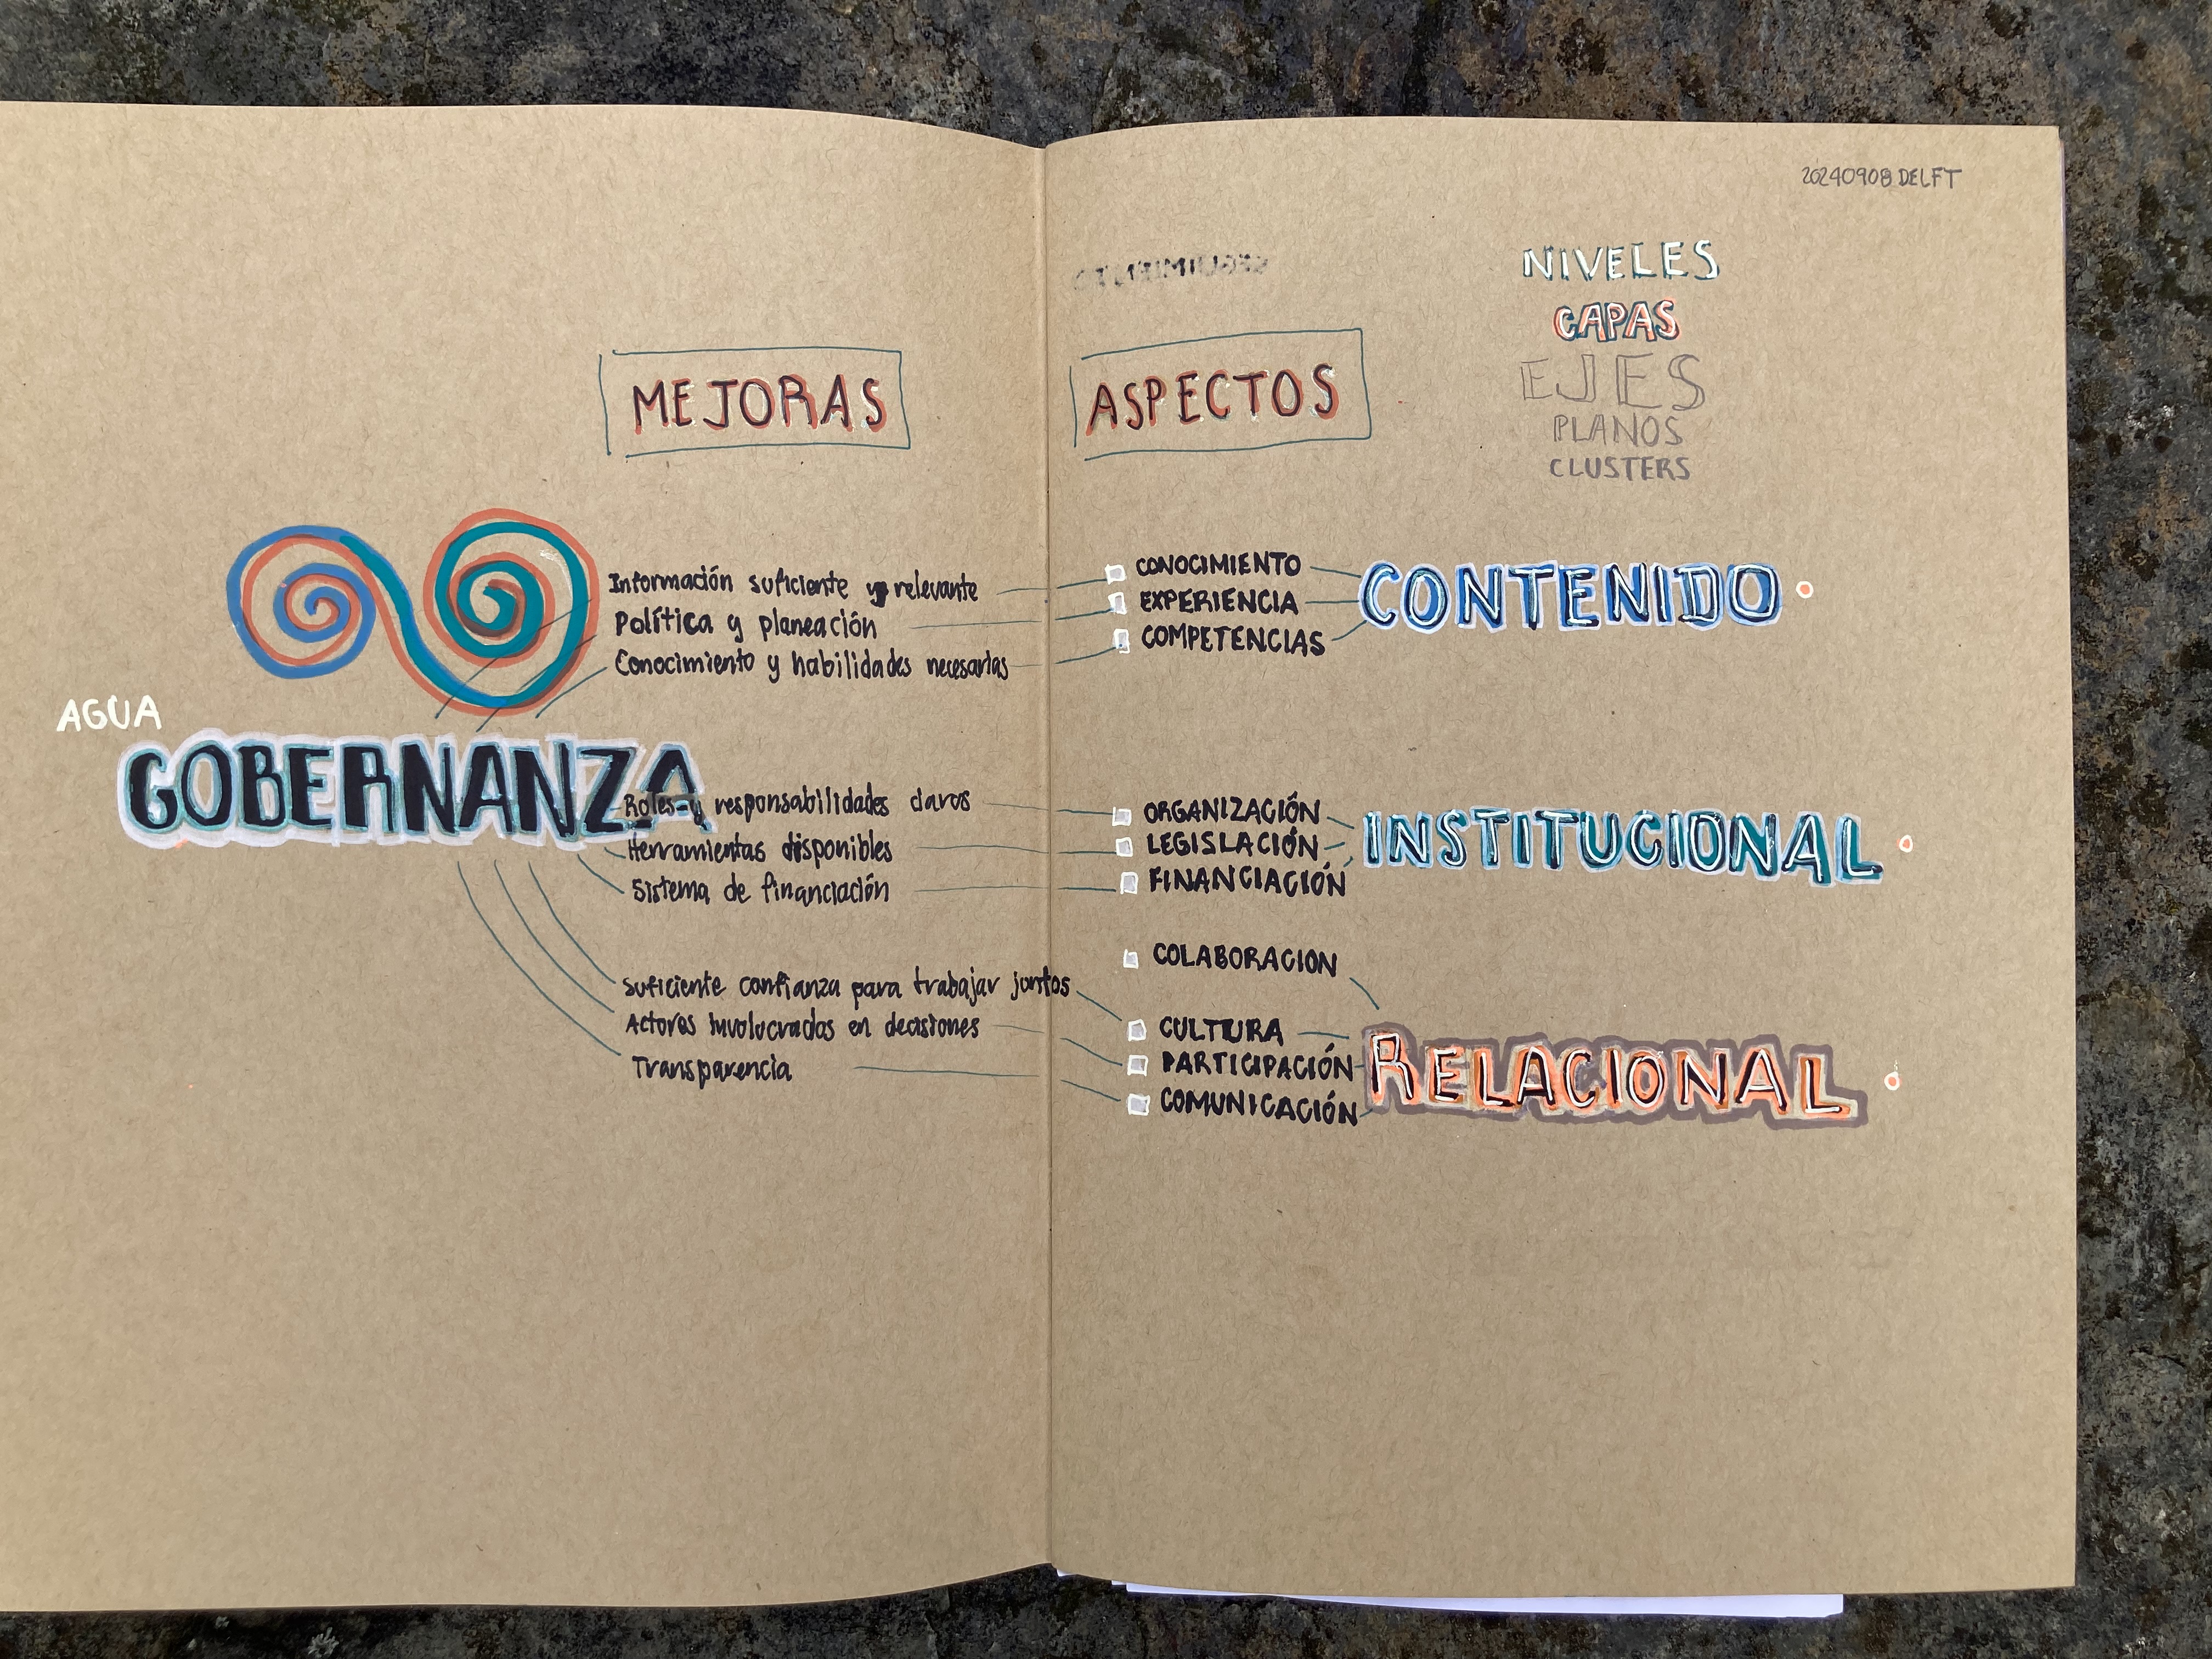 20240908 DELFT
NIVELES
CAPAS
EJES
PLANOS
CLUSTERS
MEJORAS
ASPECTOS
AGUA
GOBERNANZA
Información suficiente y relevante
Política y planeación
Conocimiento y habilidades necesarias
CONOCIMIENTO
EXPERIENCIA
COMPETENCIAS
CONTENIDO
Roles y responsabilidades claros
Herramientas disponibles
Sistema de financiación
ORGANIZACIÓN
LEGISLACIÓN
FINANCIACIÓN
INSTITUCIONAL
Suficiente confianza para trabajar juntos
Actores involucrados en decisiones
Transparencia
COLABORACION
CULTURA
PARTICIPACIÓN
COMUNICACIÓN
RELACIONAL